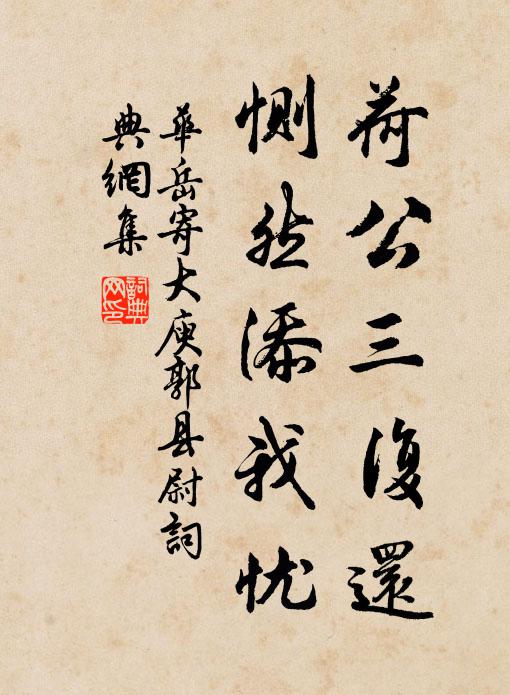 荷公三復還
惻然添我忧
華岳寄大庾郭县尉詞
典網集
詞典网印